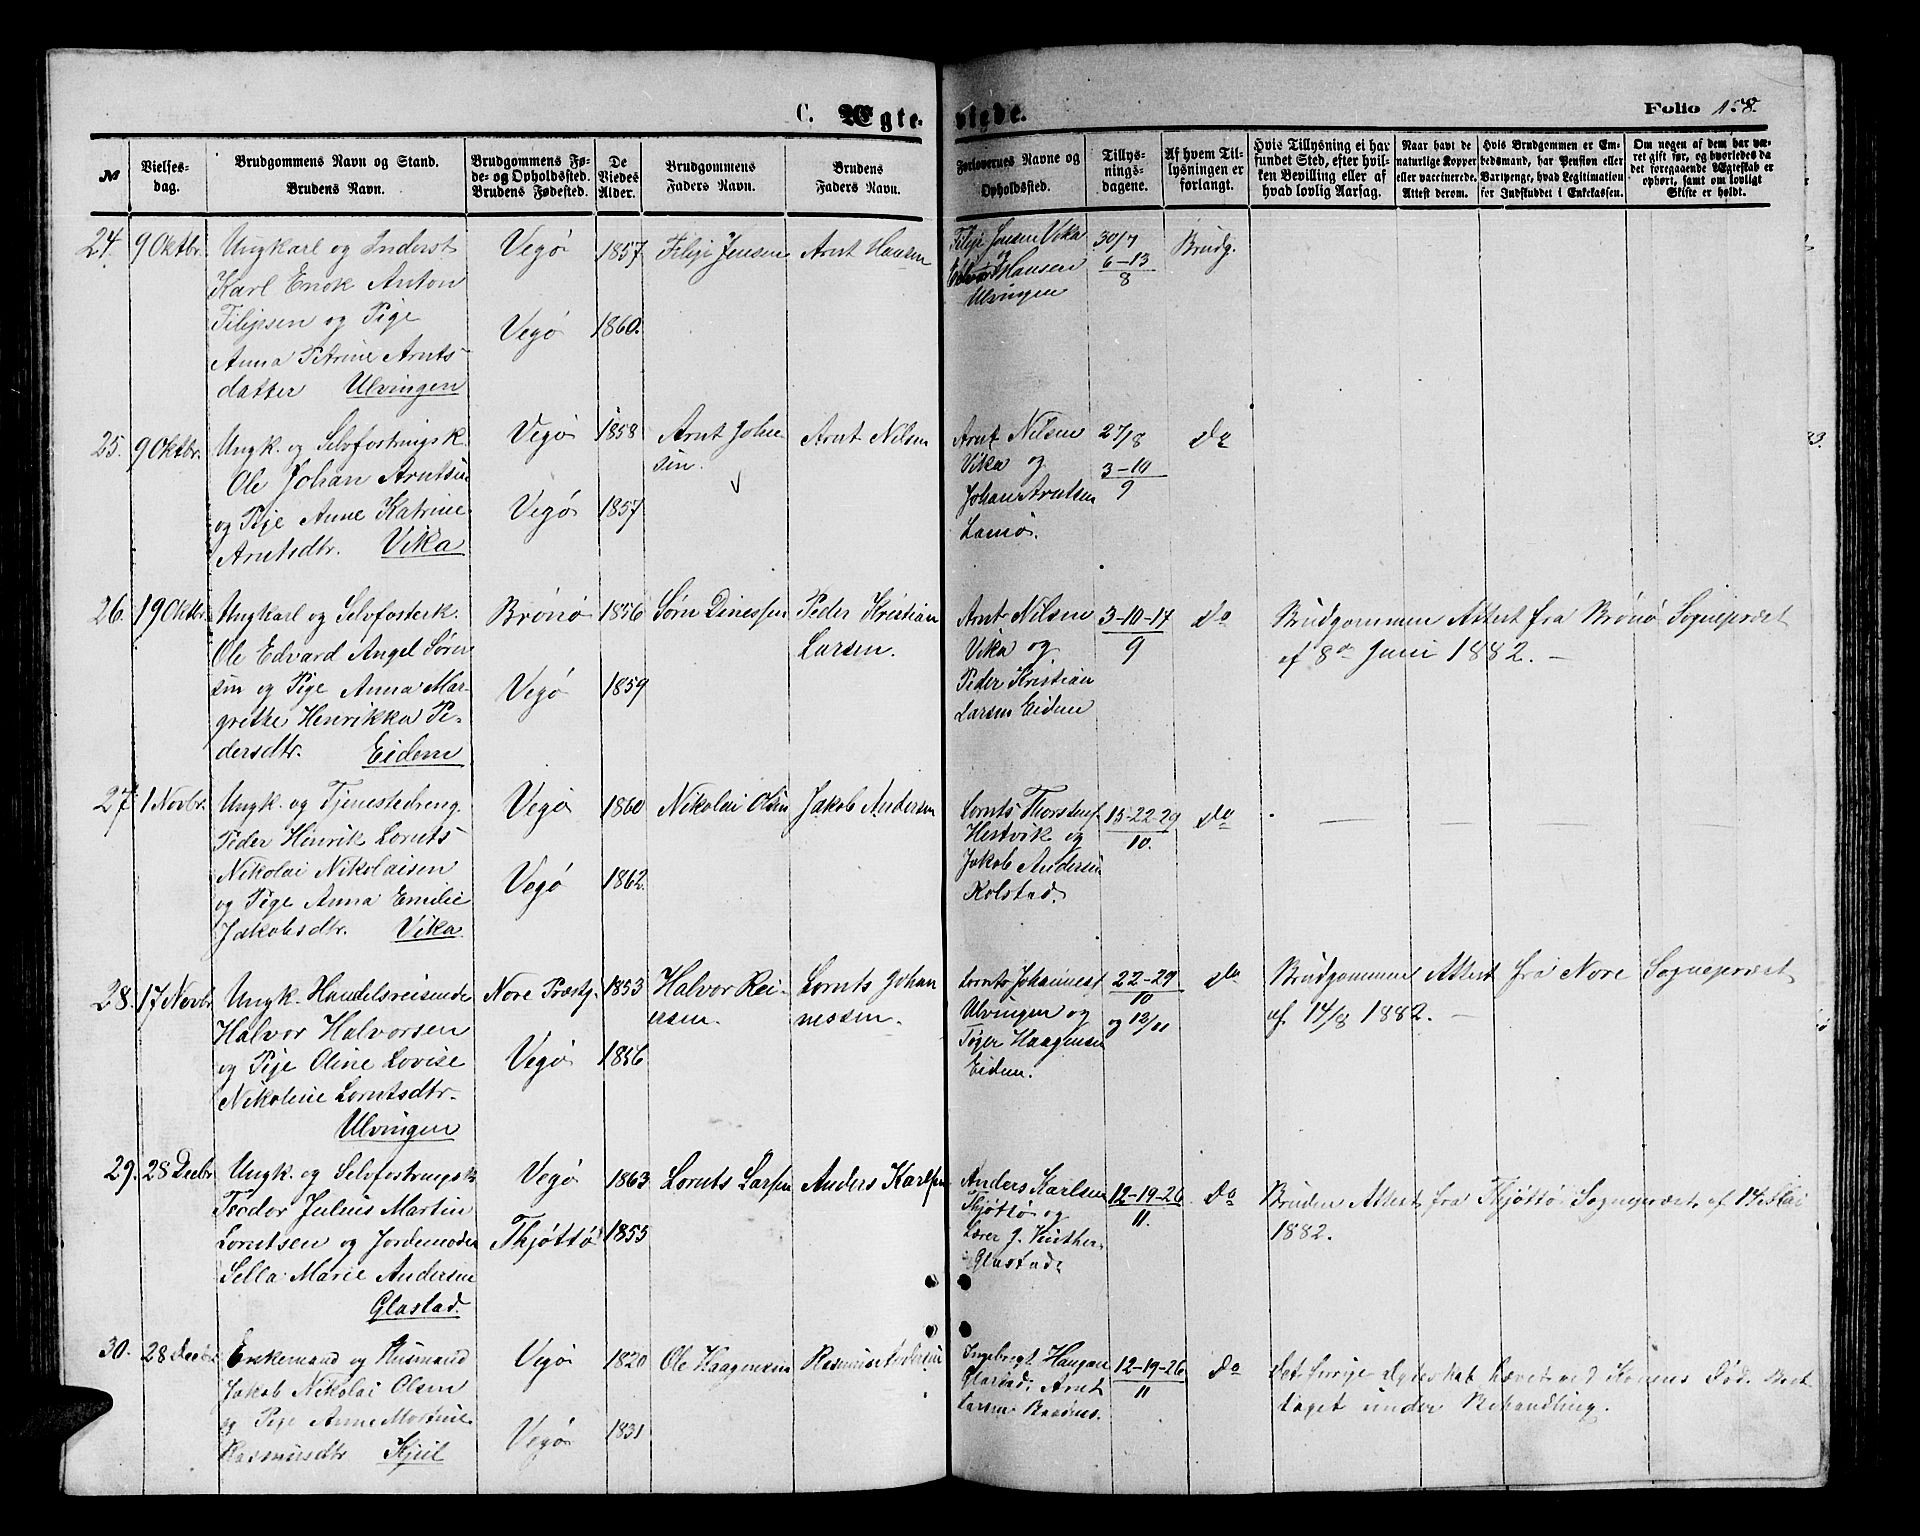 C. Ægte-
viede.
Folio 158.
№
Vielses-
dag.
Brudgommens Navn og Stand.
Brudens Navn.
Brudgommens Fø-
de- og Opholdssted.
Brudens Fødested.
De
Viedes
Alder.
Brudgommens
Faders Navn.
Brudens
Faders Navn.
Forlovernes Navne og
Opholdssted.
Tillys-
nings-
dagene.
Af hvem Til-
lysningen er
forlangt.
Hvis Tillysning ei har
fundet Sted, efter hvil-
ken Bevilling eller af
hvad lovlig Aarsag.
Naar havt de
naturlige Kopper
eller vaccinerede.
Attest derom.
Hvis Brudgommen er Em-
bedsmand, har Pension eller
Vartpenge, hvad Legitimation
for Indskuddet i Enkekassen.
Om nogen af dem har væ-
ret gift før, og hvorledes da
det foregaaende Ægteskab er
ophørt, samt om lovligt
Skifte er holdt.
24. 9 Oktbr.
Ungkarl og Inderst
Karl Enok Anton
Filipsen og Pige
Anna Petrine Arnts-
datter Ulvingen
Vegø 1857
Vegø 1860.
Filip Jensen
Arnt Hansen
Filip Jensen Vika
og
Hansen
Ulvingen
30/7
6-13
8
Brudg.
25. 9 Oktbr.
Ungk. og Selvfostringsk.
Ole Johan Arntsen
og Pige Anne Katrine
Arntsdtr. Vika
Vegø 1858
Vegø 1857
Arnt Johan
sen.
Arnt Nilsen
Arnt Nilsen
Vika og
Johan Arntsen
Lamø.
27/8
3-10
9
do
26. 19 Oktbr.
Ungkarl og Selvfosterk.
Ole Edvard Angel Søren
sen og Pige Anna Mar-
grethe Henrikka Pe-
dersdtr. Eidem
Brønø 1856
Vegø 1859
Sørn Dinessen
Peder Kristian
Larsen.
Arnt Nilsen
Vika og
Peder Kristian
Larsen Eidem
3-10-17
9
do
Brudgommen Attest fra Brønø Sognepræst
af 8de Juni 1882. —
27. 1 Novbr.
Ungk. og Tjenestedreng
Peder Hinrik Lornts
Nikolai Nikolaisen
og Pige Anna Emilie
Jakobsdtr. Vika
Vegø 1860
Vegø 1862.
Nikolai Olsen
Jakob Andersen
Lornts Thorstens.
Hestvik og
Jakob Andersen
Kolstad.
15-22-29
10.
do
28. 17 Novbr
Ungk. Handelsreisende
Halvor Halvorsen
og Pige Oline Lovise
Nikoline Lorntsdtr.
Ulvingen
Nore Præstg. 1853
Vegø 1856
Halvor Rei-
ersen.
Lornts Johan
nessen.
Lornts Johanness
Ulvingen og
Tøger Haagensen
Eidem.
22-29
10
og 12/11
do
Brudgommen Attest fra Nore Sognepræst
af 14/8 1882. —
29. 28 Decbr
Ungk. og Selvfostringsk
Teodor Julius Martin
Lorntsen og Jordemoder
Sella Marie Andersen
Glastad.
Vegø 1863
Thjøttø 1855
Lornts Larsen
Anders Karlsen
Anders Karlsen
Thjøttø og
Lærer J. Vinther
Glastad.
12-19-26
11.
do
Bruden Attest fra Thjøttø Sognepræst af 14de
1882.
30. 28 Decbr
Enkemand og Husmand
Jakob Nikolai Olsen
og Pige Anne Martine
Rasmusdtr Kjul
Vegø 1820
Vegø 1831
Ole Haagensen
Rasmus Pedersen
Ingebregt Haagen
Glastad, Arnt
Larsen
12-19-26
11
do
det forige Ægteskab hævet ved Konens Død.
taget under Behandling.